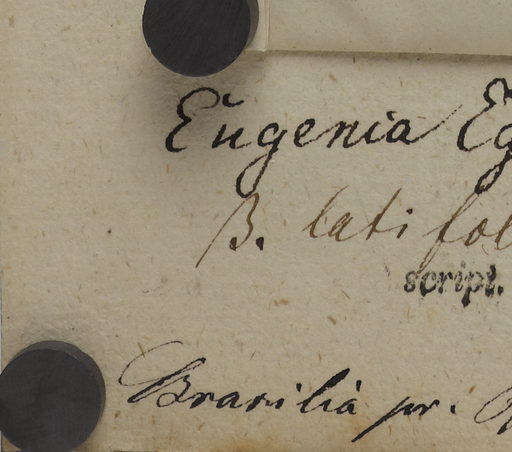 Eugenia Eg
β. latifol
script.
Brasilia pr.